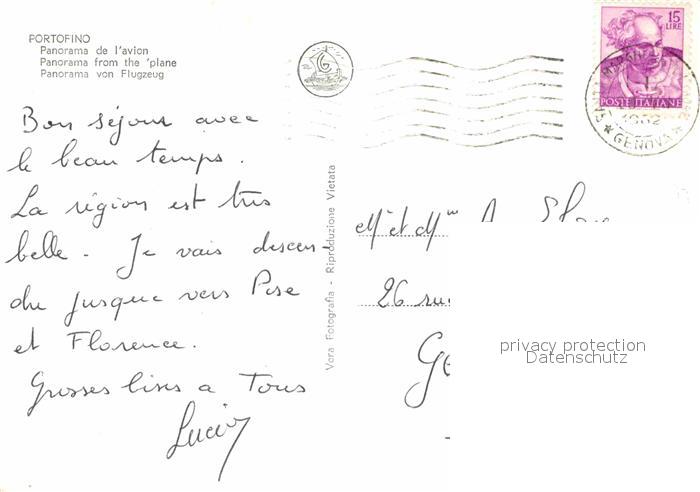 PORTOFINO
Panorama de l'avion
Panorama from the 'plane
Panorama von Flugzeug
15
LIRE
POSTE ITALIANE
1962
* GENOVA *
Bon séjour avec
le beau temps.
La région est très
belle. Je vais descen-
dre jusque vers Pise
et Florence.
Grosses bises a Tous
Lucie
Vera Fotografia - Riproduzione Vietata
Mr et Mme A.
26 rue
Ge
privacy protection
Datenschutz